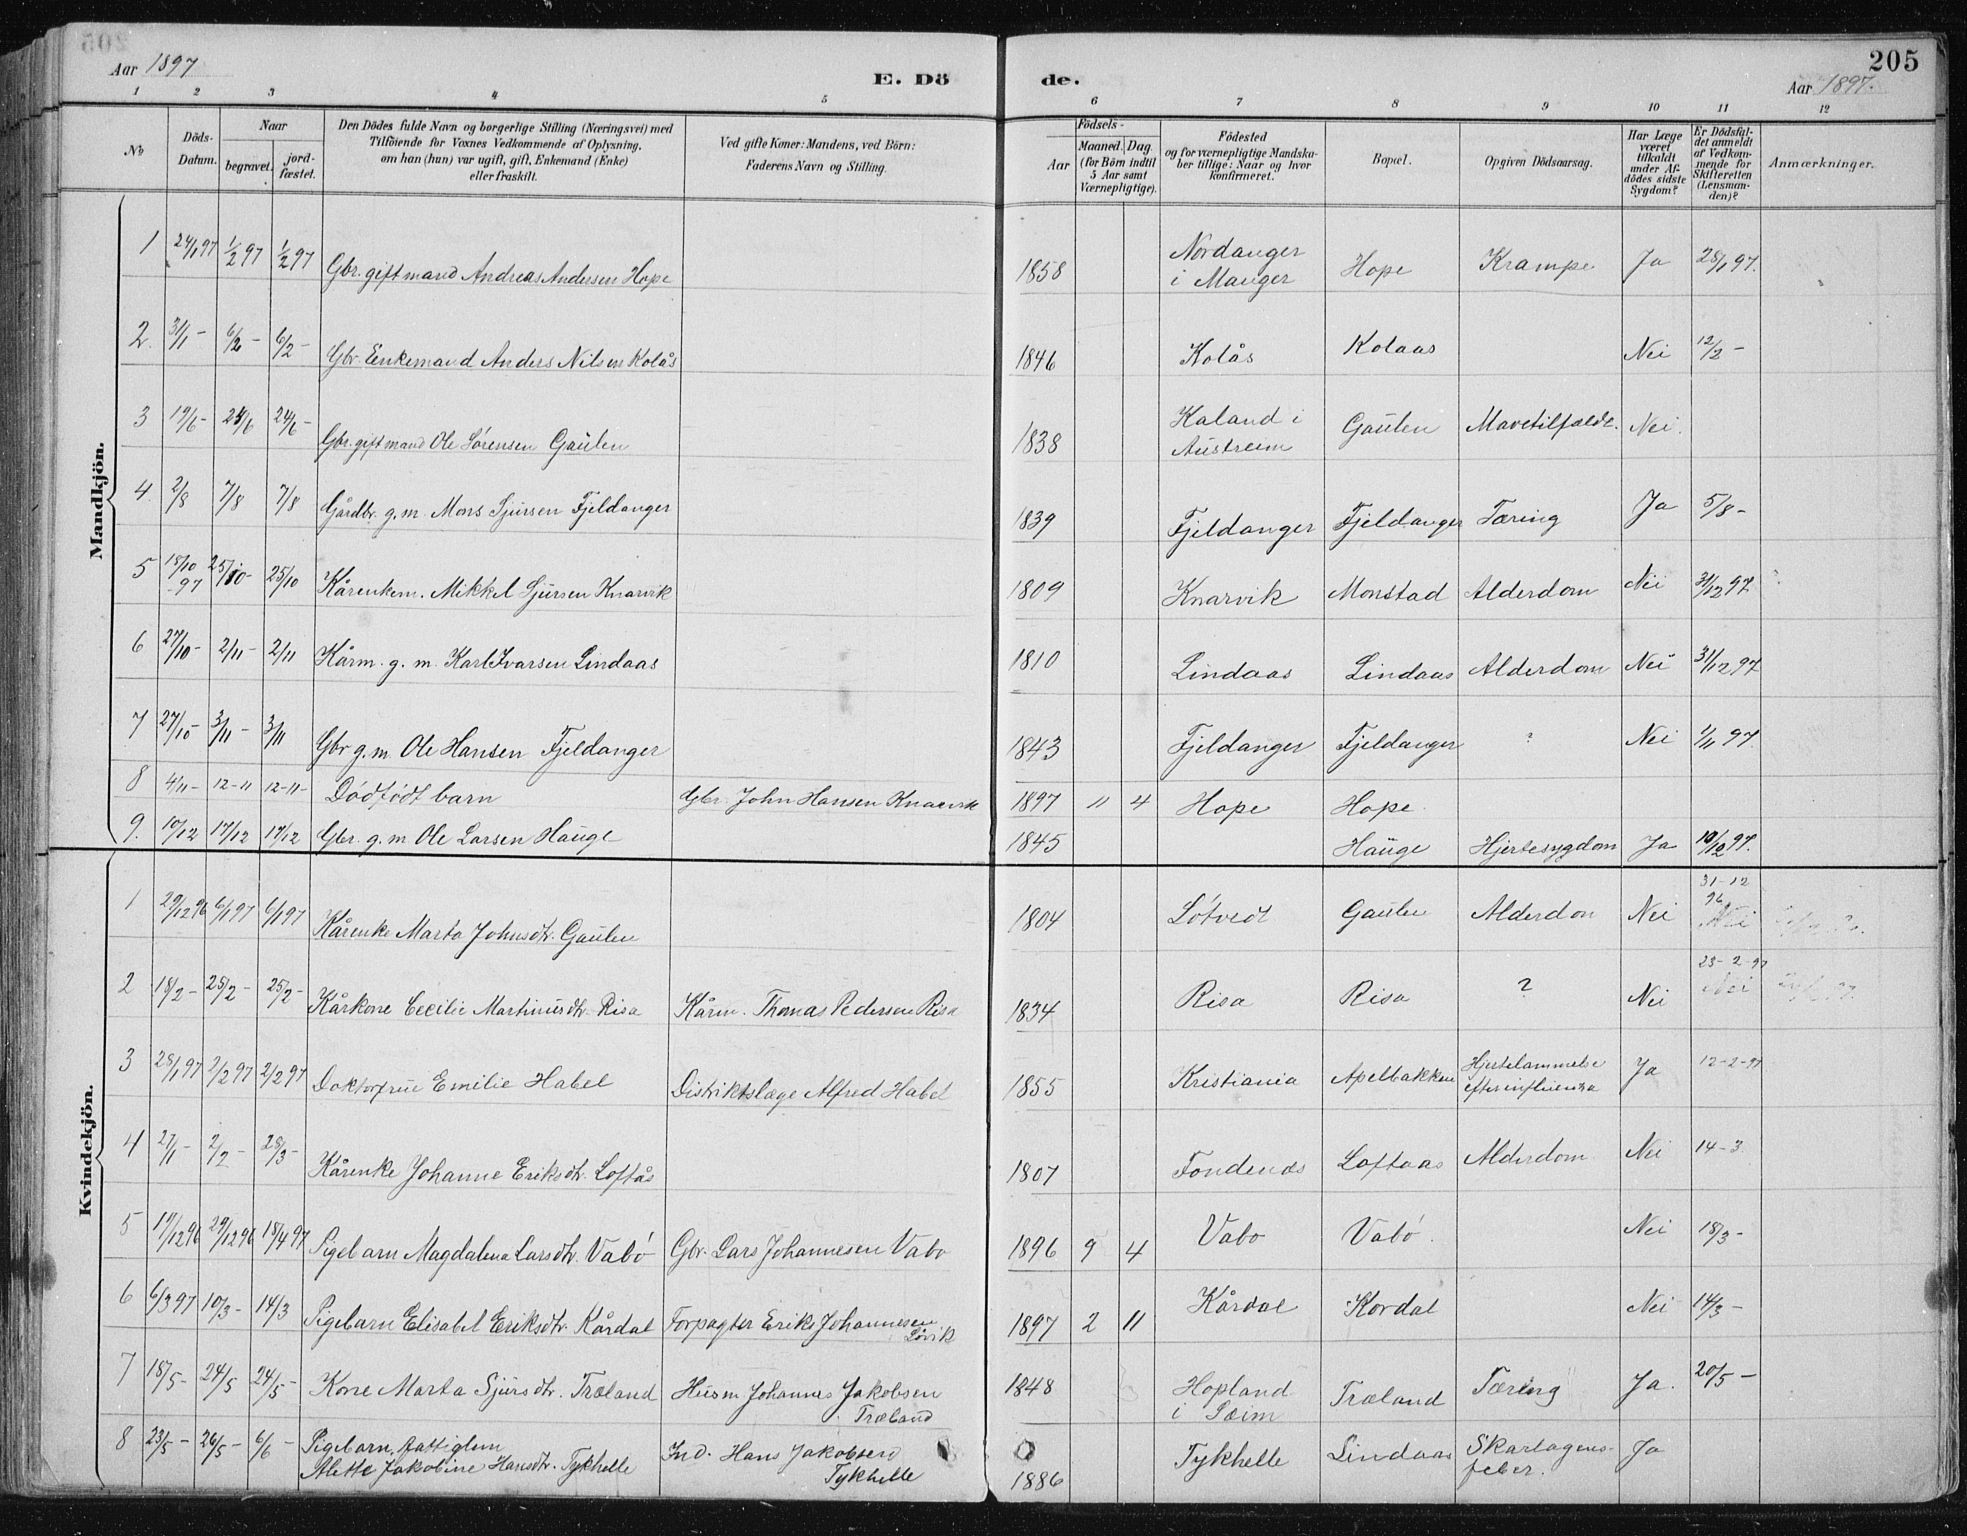 205
Aar 1897 E. Dö de. Aar 1897.
1 2 3 4 5 6 7 8 9 10 11 12
No
Döds-Datum.
Naar
begravet.
jord-fæstet.
Den Dödes fulde Navn og borgerlige Stilling (Næringsvei) med
Tilföiende for Voxnes Vedkommende af Oplysning,
om han (hun) var ugift, gift, Enkemand (Enke)
eller fraskilt.
Ved gifte Koner: Mandens, ved Börn:
Faderens Navn og Stilling.
Födsels-
Aar
Maaned. Dag
(for Börn indtil
5 Aar samt
Værnepligtige).
Födested
og for værnepligtige Mandska-
ber tillige: Naar og hvor
konfirmeret.
Bopæl.
Opgiven Dödsaarsag.
Har Læge
været
tilkaldt
under Af-
dödes sidste
Sygdom?
Er Dödsfal-
det anmeldt
af Vedkom-
mende for
Skifteretten
(Lensman-
den)?
Anmærkninger.
Mandkjön.
1 24/1 97 1/2 97 1/2 97 Gbr. giftmand Andreas Andersen Hope 1858 Nordanger i Manger Hope Krampe Ja 28/1 97.
2. 31/1 - 6/2 - 6/2 - Gbr. Enkemand Anders Nilsen Kolås 1846 Kolås Kolaas Nei 12/2 -
3 19/6 - 24/6 24/6 - Gbr. giftmand Ole Sörensen Gaulen 1838 Kaland i Austreim Gaulen Mavetilfælde. Nei.
4 2/8 7/8 7/8 Gårdbr. g. m. Mons Sjursen Fjeldanger 1839 Fjeldanger Fjeldanger Tæring Ja 5/8 -
5 18/10 -97 25/10 - 25/10 Kårenkem. Mikkel Sjursen Knarvik 1809 Knarvik Monstad Alderdom Nei 31/12 97
6 27/10 - 2/11 - 2/11 Kårm. g. m. Karl Ivarsen Lindaas 1810 Lindaas Lindaas Alderdom Nei 31/12 97
7 27/10 - 3/11 - 3/11 Gbr g. m. Ole Hansen Fjeldanger 1843 Fjeldanger Fjeldanger ? Nei 1/11 97
8 4/11 - 12-11 12-11- Dödfödt barn Gbr. John Hansen Knarvik 1897 11 4 Hope Hope
9. 10/12 17/12 17/12 Gbr. g. m Ole Larsen Hauge 1845 Hauge Hjertesygdom Ja 10/12 97.
Kvindekjön.
1 29/12 96 6/1 97 6/1 97 Kårenke Marta Johnsdtr. Gaulen 1804 Lötvedt Gaulen Alderdom Nei 31-12 96 Nei
2 18/2 - 25/2 - 25/2 - Kårkone Cecilie Martinusdtr. Risa Kårm. Thomas Pedersen Risa 1834 Risa Risa ? Nei 23-2-97 Nei
3 28/1 97 2/2 97 2/2 97 Doktorfrue Emilie Habel Distriktslæge Alfred Habel 1855 Kristiania Apelbakken Hjertelammelse efter influenza Ja 12-2-97
4 27/1 - 2/2 - 28/3 - Kårenke Johanne Eriksdtr. Loftås 1807 Fondenæs Loftaas Alderdom Nei 14-3
5 19/12 96 29/12 96 18/4 97 Pigebarn Magdalena Larsdtr. Vabö Gbr. Lars Johannesen Vabo 1896 9 4 Vabo Vabö. Nei 18/3 -
6 6/3 97 10/3 - 14/3 Pigebarn Elisabet Eriksdtr. Kårdal Forpagter Erik Johannesen Lövik 1897 2 11 Kårdal Kordal Nei 14/3 -
7 18/5 - 24/5 24/5 - Kone Marta Sjursdtr. Træland Husm Johannes Jakobsen Træland 1848 Hopland i Sæim Træland Tæring Ja. 20/5 -
8 23/5 - 26/5 - 6/6 - Pigebarn, fattiglem Alette Jakobine Hansdtr. Tykhelle Ind. Hans Jakobsen Tykhelle 1886 Tykhelle Lindaas Skarlagens-feber. Ja